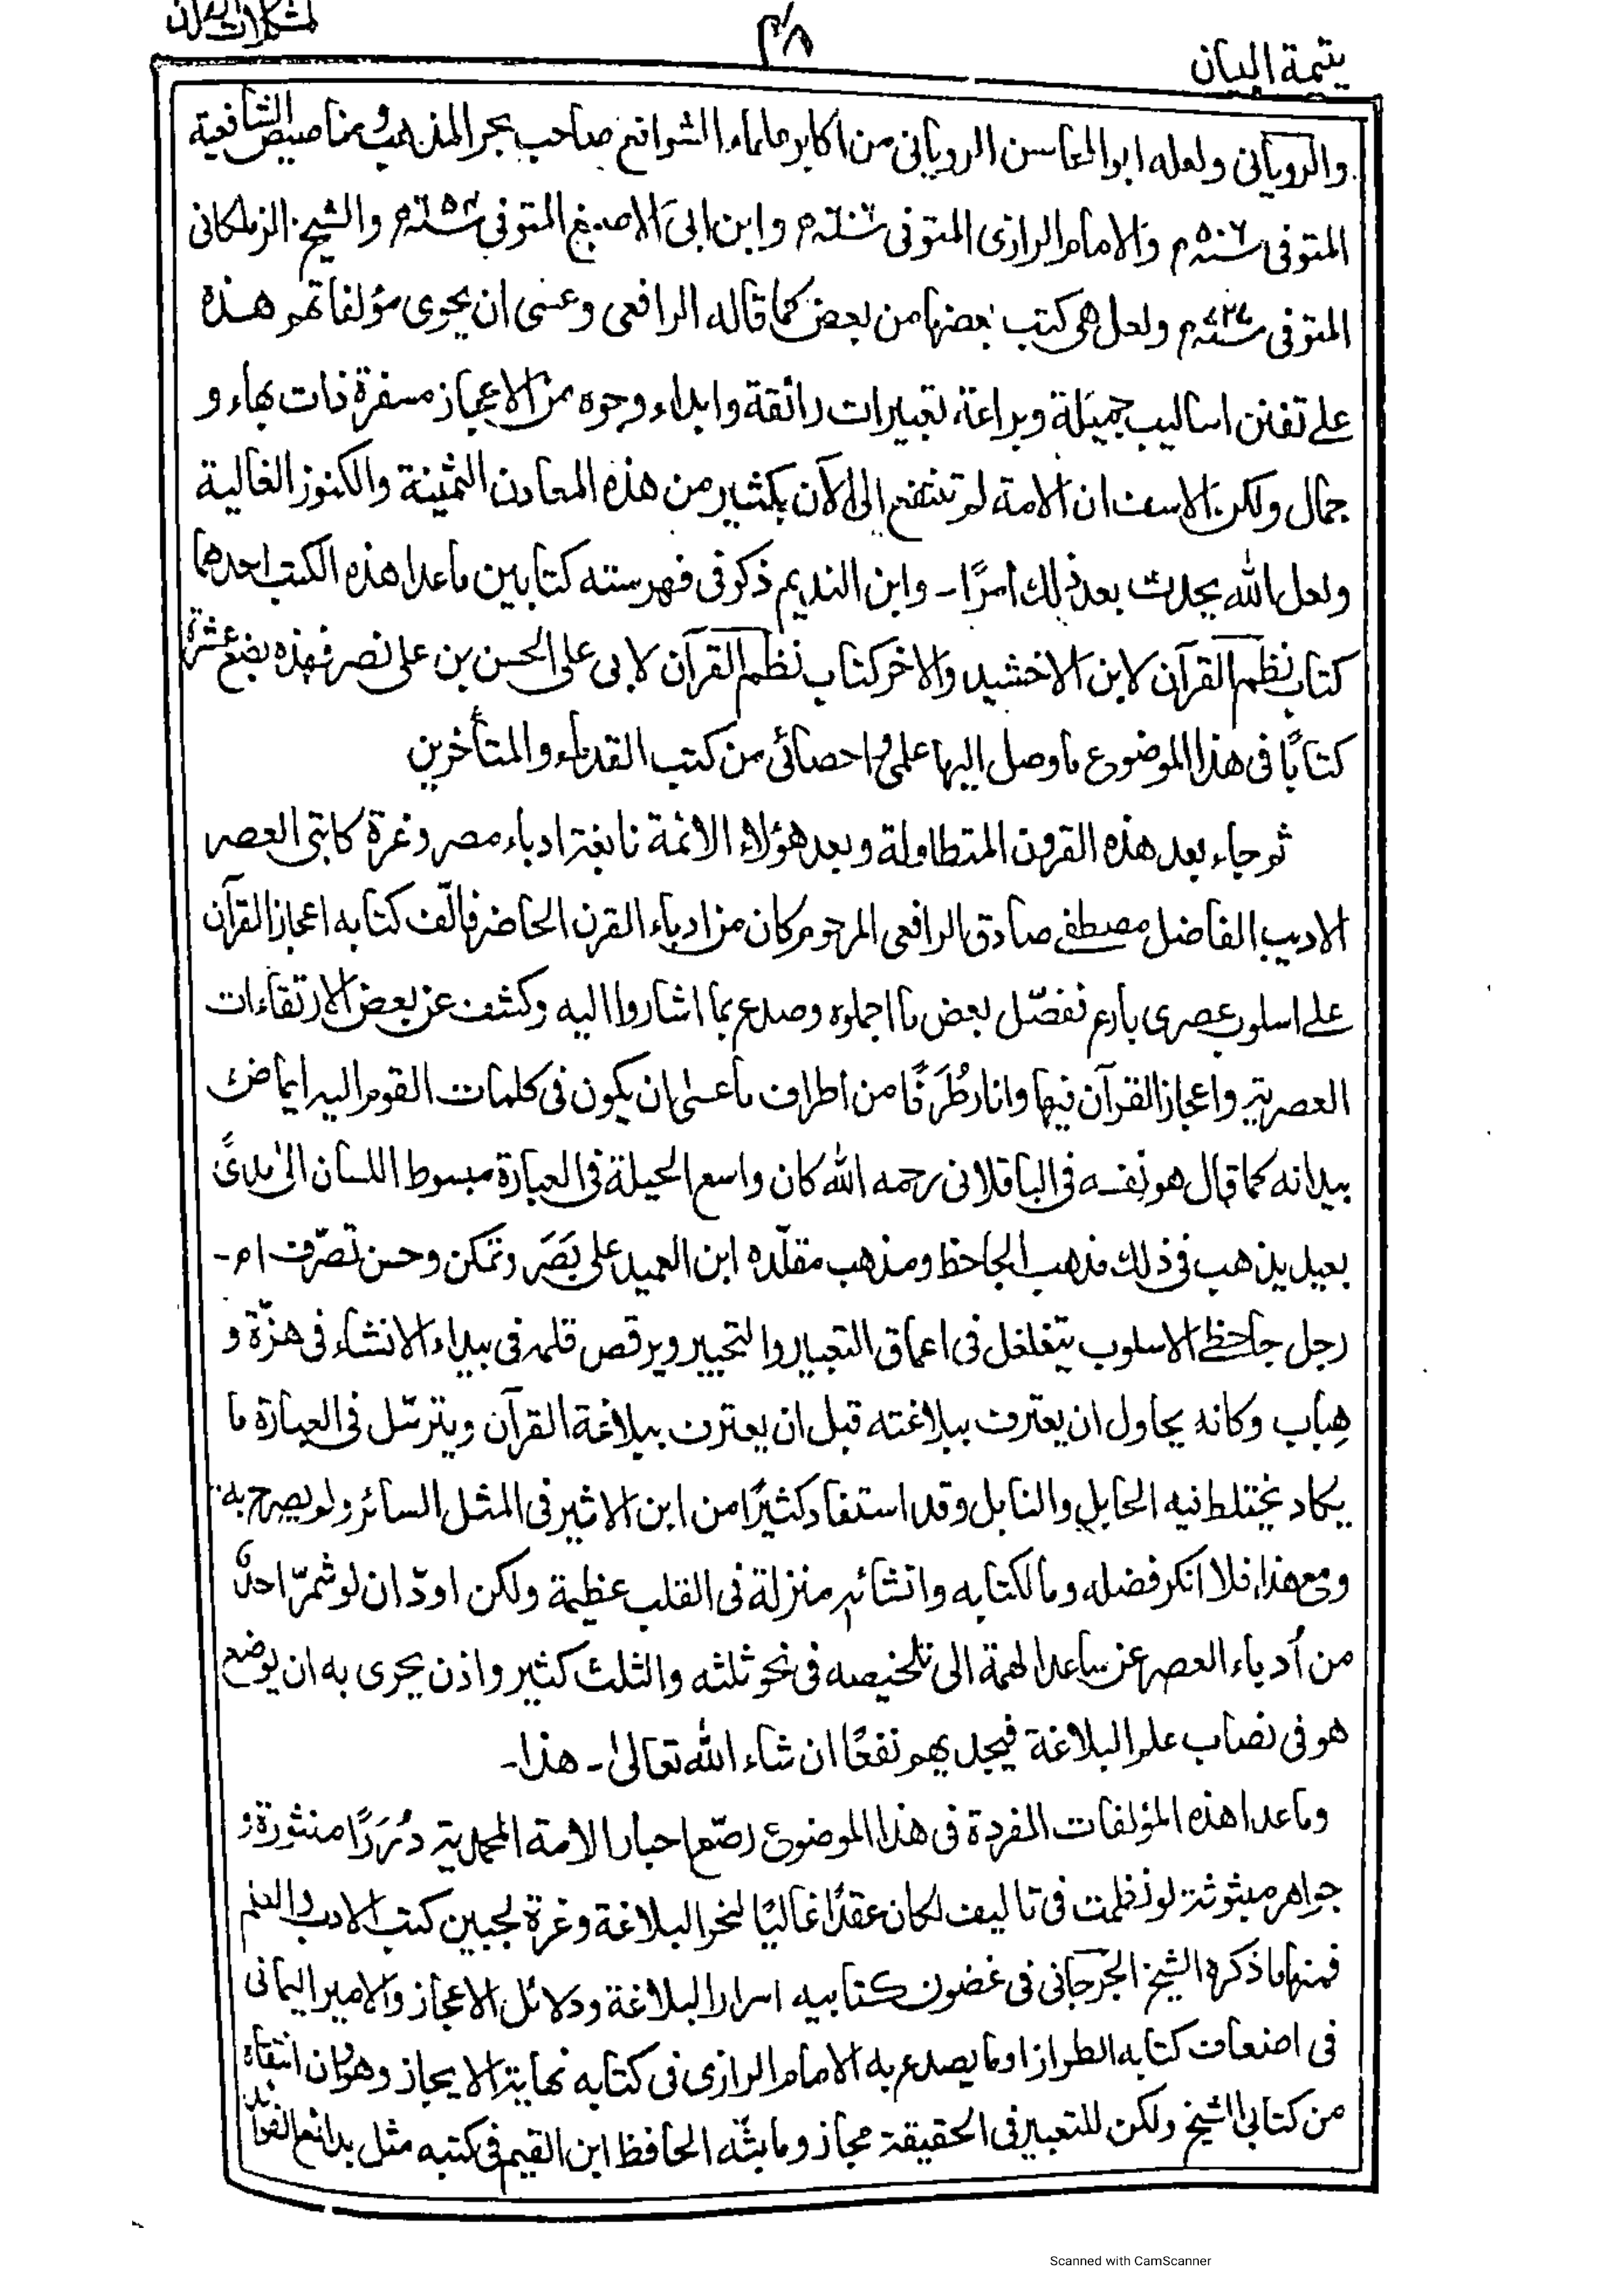 يتيمة البيان
٣٨
مشكلات القرآن
والرويانى ولعله ابو المحاسن الرويانى من اكابر علماء الشوافع صاحب بحر المذهب ومناصيص الشافعية
المتوفى سنه ٥٠٢ م والامام الرازى المتوفى سنه ٦٠٦ م وابن ابى الاصبغ المتوفى سنه ٦٥٤ م والشيخ الزملكانى
المتوفى سنه ٧٢٧ م ولعل هى كتب بعضها من بعض كما قاله الرافعى وعسى ان يحوى مؤلفاتهم هذه
على تفنن اساليب جميلة وبراعة تعبيرات رائقة وابداء وجوه من الاعجاز مسفرة ذات بهاء و
جمال ولكن الاسف ان الامة لم تنتفع الى الآن بكثير من هذه المعادن الثمينة والكنوز الغالية
ولعل الله يحدث بعد ذلك امرًا۔ وابن النديم ذكر فى فهرسته كتابين ماعدا هذه الكتب احدهما
كتاب نظم القرآن لابن الاخشيد والاخر كتاب نظم القرآن لابى على الحسن بن على نصر فهذه بضع عشرة
كتابًا فى هذا الموضوع ما وصل اليها علمى واحصائى من كتب القدماء والمتأخرين
ثم جاء بعد هذه القرون المتطاولة وبعد هؤلاء الائمة نابغة ادباء مصر وغرة كاتبى العصر
الاديب الفاضل مصطفى صادق الرافعى المرحوم كان من ادباء القرن الحاضر فالّف كتابه اعجاز القرآن
على اسلوب عصرى بارع ففصّل بعض ما اجملوه وصدع بما اشاروا اليه وكشف عن بعض الارتقاءات
العصرية واعجاز القرآن فيها وانار طُرَفًا من اطراف ماعسى ان يكون فى كلمات القوم اليه ايماض
بيدانه كما قال هو نفسه فى الباقلانى رحمه الله كان واسع الحيلة فى العبارة مبسوط اللسان الى مدىً
بعيد يذهب فى ذلك مذهب الجاحظ ومذهب مقلّده ابن العميد على بَصَر وتمكن وحسن تصرّف اه۔
رجل جاحظى الاسلوب يتغلغل فى اعماق التعبير والتحبير ويرقص قلمه فى بيداء الانشاء فى هزّة و
هِباب وكانه يحاول ان يعترف ببلاغته قبل ان يعترف ببلاغة القرآن ويترسّل فى العبارة ما
يكاد يختلط فيه الحابل والنابل وقد استفاد كثيرًا من ابن الاثير فى المثل السائر ولم يصرح به.
ومع هذا فلا انكر فضله وما لكتابه وانشائه منزلة فى القلب عظيمة ولكن اودّ ان لو شمّر احدٌ
من أدباء العصر عن ساعد الهمة الى تلخيصه فى نحو ثلثه والثلث كثير واذن يحرى به ان يوضع
هو فى نصاب علم البلاغة فيجديهم نفعًا ان شاء الله تعالىٰ۔ هذا۔
وماعدا هذه المؤلفات المفردة فى هذا الموضوع رصّع احبار الامة المحمدية دُرَرًا منثورة و
جواهر مبثوثة لو نظمت فى تاليف لكان عقدًا غاليًا لنحر البلاغة وغرة لجبين كتب الادب والعلم
فمنها ما ذكره الشيخ الجرجانى فى غضون كتابيه اسرار البلاغة ودلائل الاعجاز والامير اليمانى
فى اضعاف كتابه الطراز او ما يصدع به الامام الرازى فى كتابه نهاية الايجاز وهو وان انتقاه
من كتابى الشيخ ولكن للتعبير فى الحقيقة مجاز وما بثّه الحافظ ابن القيم فى كتبه مثل بدائع الفوائد
Scanned with CamScanner